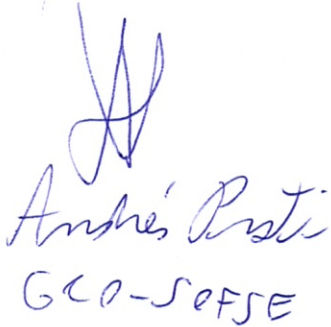 Andrés Prati
GCO-SOFSE